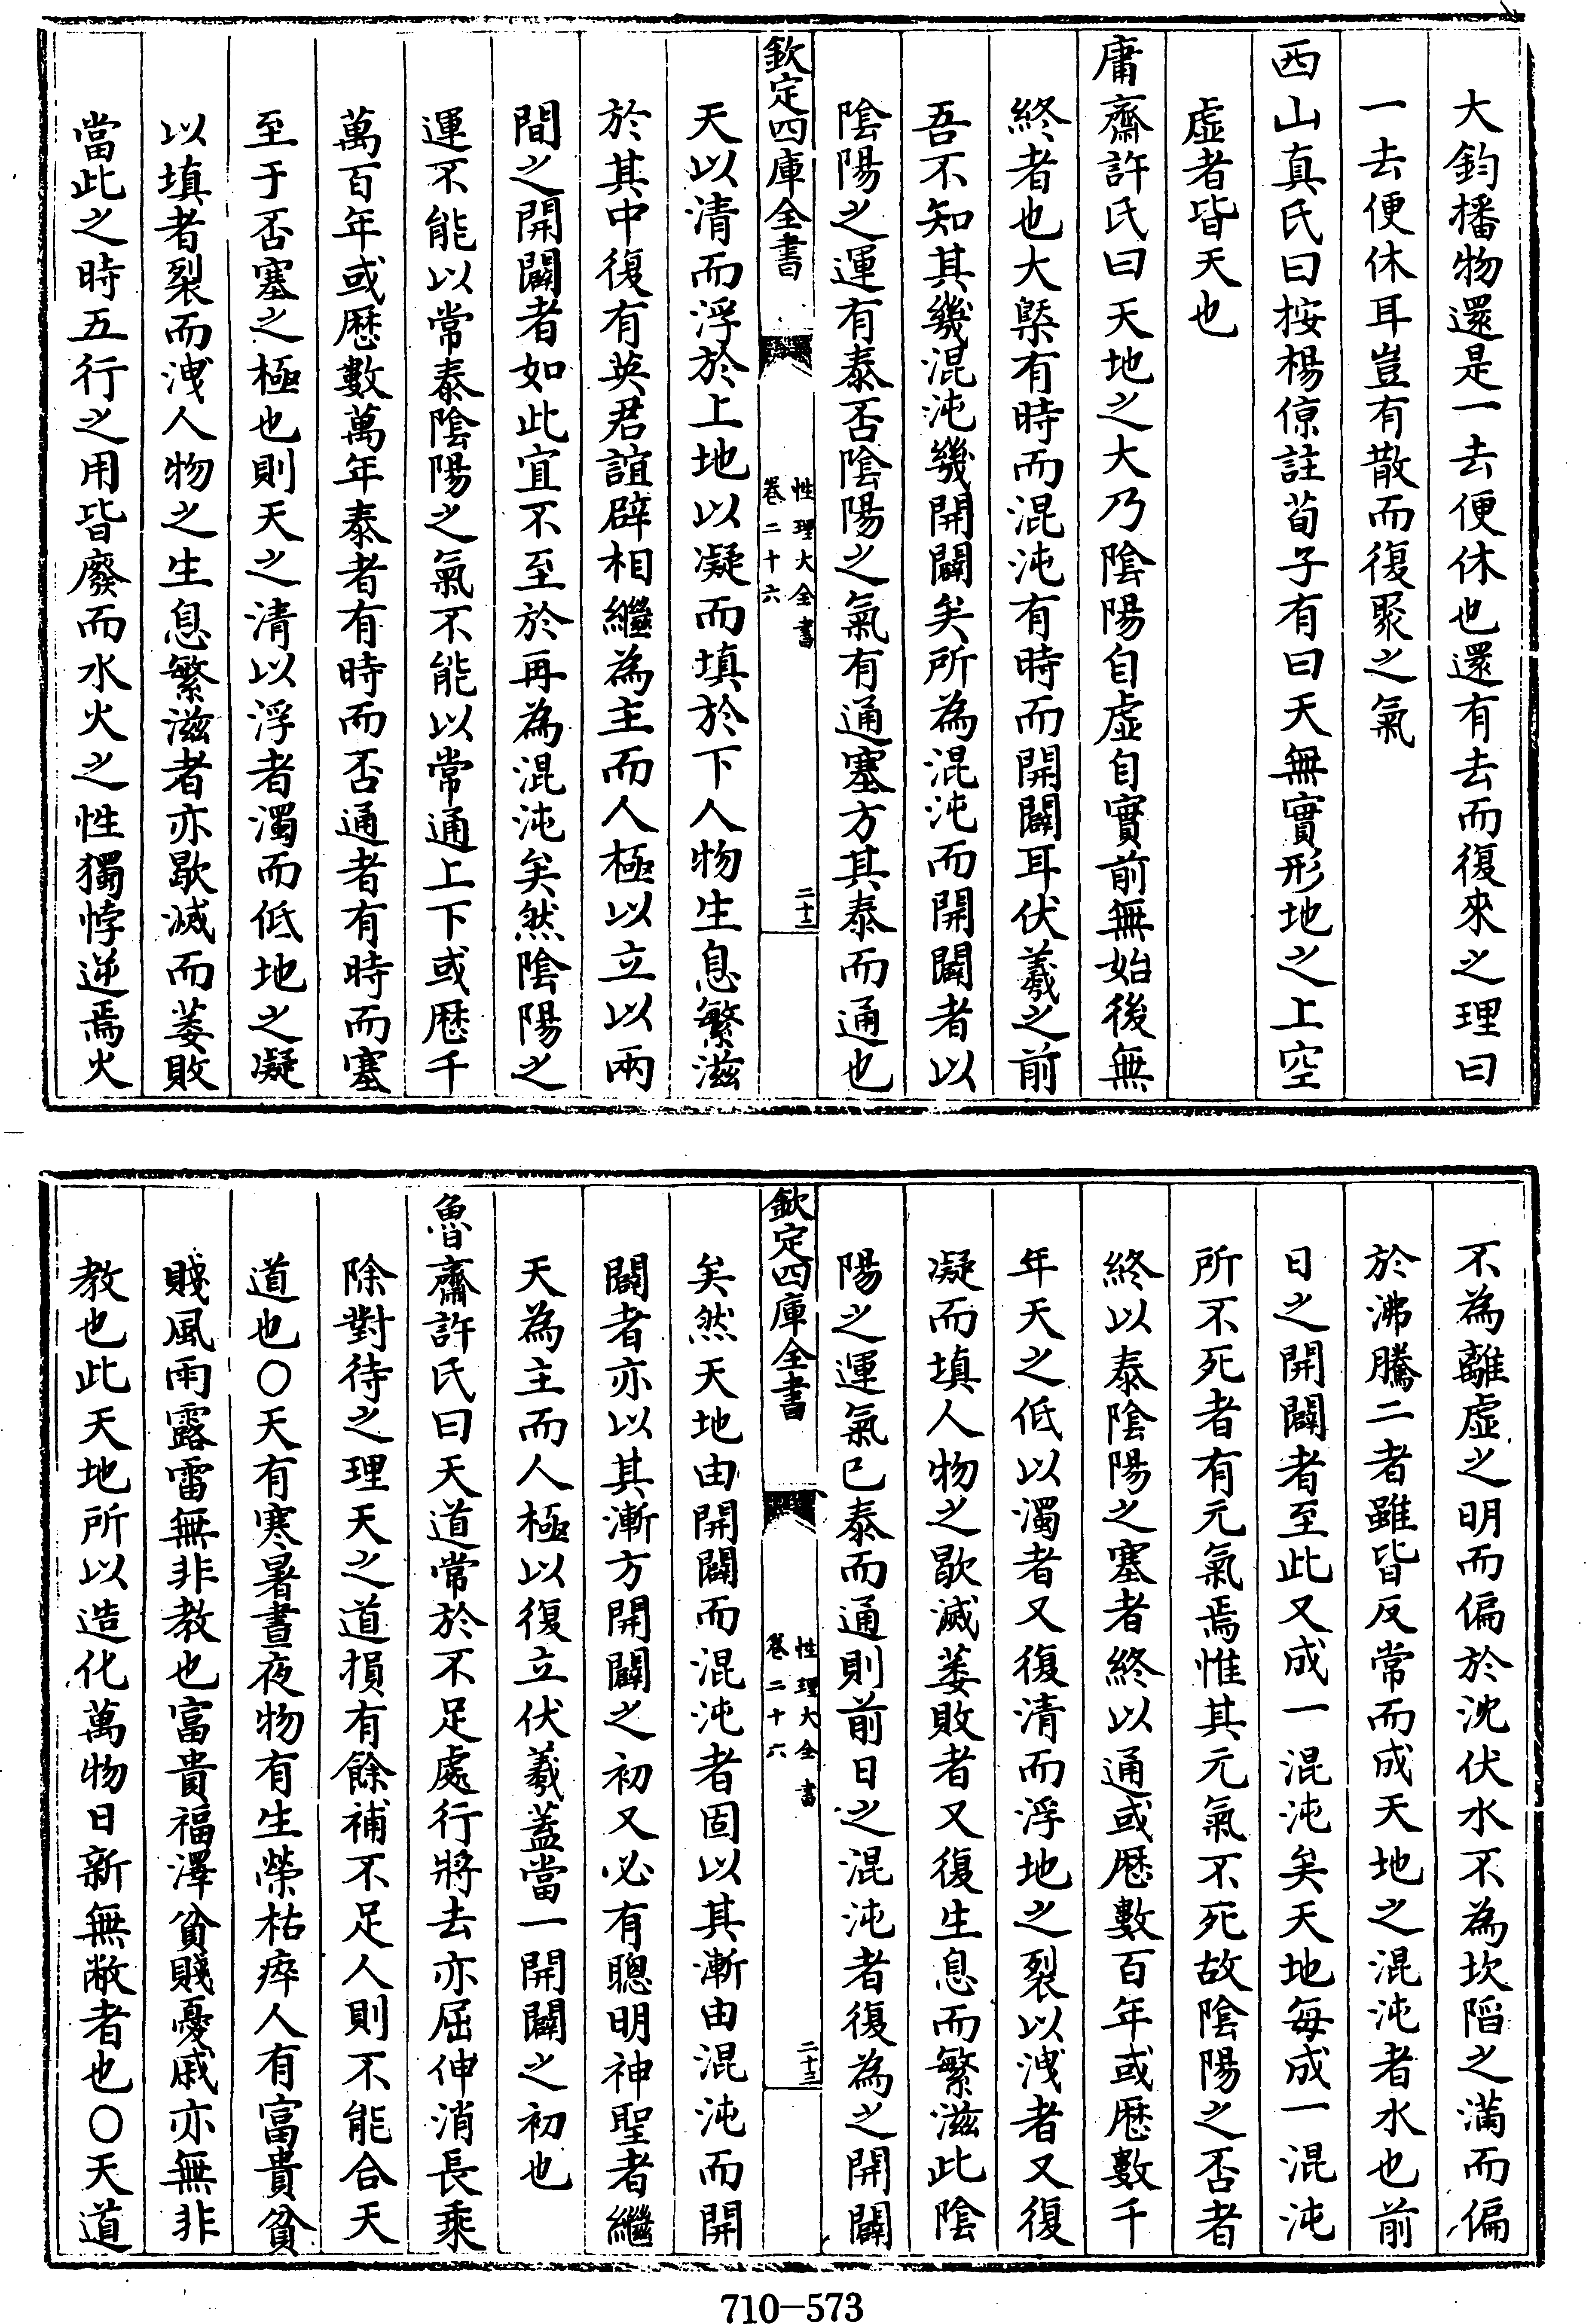 大鈞播物還是一去便休也還有去而復來之理曰
一去便休耳豈有散而復聚之氣
西山真氏曰按楊倞註荀子有曰天無實形地之上空
虛者皆天也
庸齋許氏曰天地之大乃陰陽自虛自實前無始後無
終者也大槩有時而混沌有時而開闢耳伏羲之前
吾不知其幾混沌幾開闢矣所為混沌而開闢者以
陰陽之運有泰否陰陽之氣有通塞方其泰而通也
欽定四庫全書
性理大全書
卷二十六
二十二
天以清而浮於上地以凝而填於下人物生息繁滋
於其中復有英君誼辟相繼為主而人極以立以兩
間之開闢者如此宜不至於再為混沌矣然陰陽之
運不能以常泰陰陽之氣不能以常通上下或歴千
萬百年或歴數萬年泰者有時而否通者有時而塞
至于否塞之極也則天之清以浮者濁而低地之凝
以填者裂而洩人物之生息繁滋者亦歇滅而萎敗
當此之時五行之用皆廢而水火之性獨悖逆焉火
不為離虛之明而偏於沈伏水不為坎陷之滿而偏
於沸騰二者雖皆反常而成天地之混沌者水也前
日之開闢者至此又成一混沌矣天地每成一混沌
所不死者有元氣焉惟其元氣不死故陰陽之否者
終以泰陰陽之塞者終以通或歴數百年或歴數千
年天之低以濁者又復清而浮地之裂以洩者又復
凝而填人物之歇滅萎敗者又復生息而繁滋此陰
陽之運氣已泰而通則前日之混沌者復為之開闢
欽定四庫全書
性理大全書
卷二十六
二十三
矣然天地由開闢而混沌者固以其漸由混沌而開
闢者亦以其漸方開闢之初又必有聰明神聖者繼
天為主而人極以復立伏羲蓋當一開闢之初也
魯齋許氏曰天道常於不足處行將去亦屈伸消長乘
除對待之理天之道損有餘補不足人則不能合天
道也○天有寒暑晝夜物有生榮枯瘁人有富貴貧
賤風雨露雷無非教也富貴福澤貧賤憂戚亦無非
教也此天地所以造化萬物日新無敝者也○天道
710-573